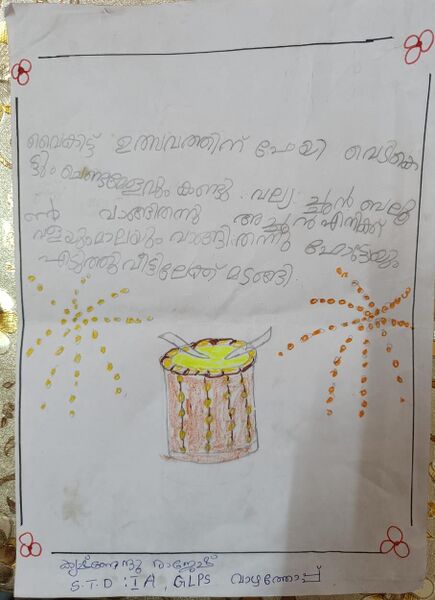 വൈകിട്ട് ഉത്സവത്തിന് പോയി വെടികെ
ട്ടും ചെണ്ടമേളവും കണ്ടു . വല്യ ച്ഛൻ ബലൂ
ൺ വാങ്ങിതന്നു അച്ഛൻ എനിക്ക്
വളയുംമാലയും വാങ്ങി തന്നു ഫോട്ടോയും
എടുത്തു വീട്ടിലേക്ക് മടങ്ങി.
കൃഷ്ണേന്ദു രാജേഷ്
S.T.D : I A, GLPS വാഴത്തോപ്പ്